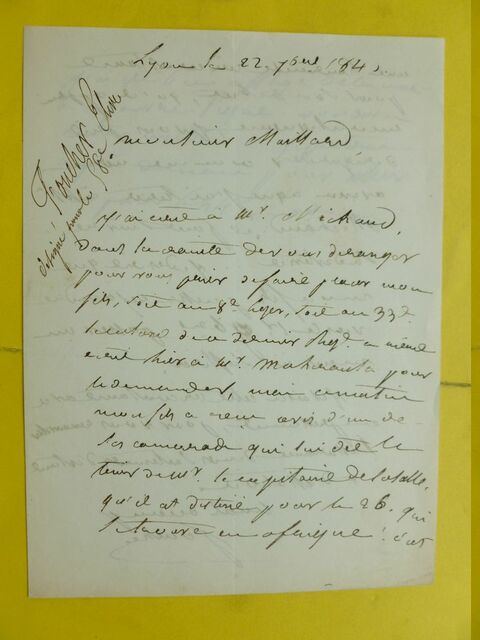 Lyon le 22 7bre 184
Foucher Elève
désigné pour le 26e
Monsieur Maillard
J'ai écrit à Mr. Michaud,
dans la crainte de vous déranger
pour vous prier de faire placer mon
fils, soit au 8e leger, soit au 33e.
de ce dernier Regt. a même
écrit hier à Mr. pour
le demander, mais ce matin
mon fils a reçu avis d'un de
ses camarade qui lui dit le
tenir de Mr le capitaine de Lasalle,
qu'il est destiné pour le 26. qui
se trouve en afrique! c'est